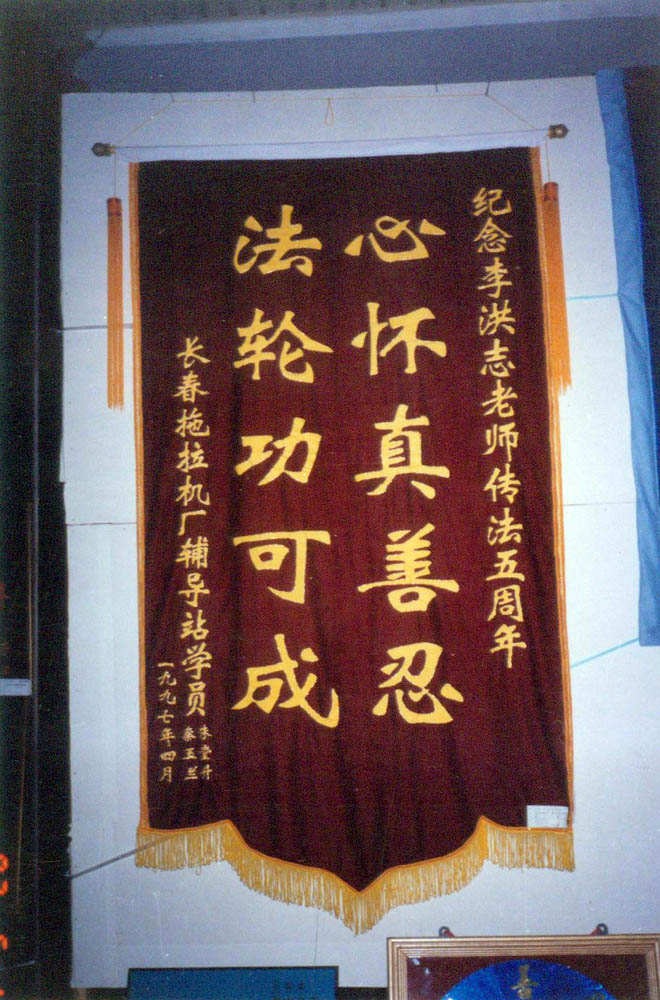 纪念李洪志老师传法五周年
心怀真善忍
法轮功可成
长春拖拉机厂辅导站学员
秦玉兰
一九九七年四月
善